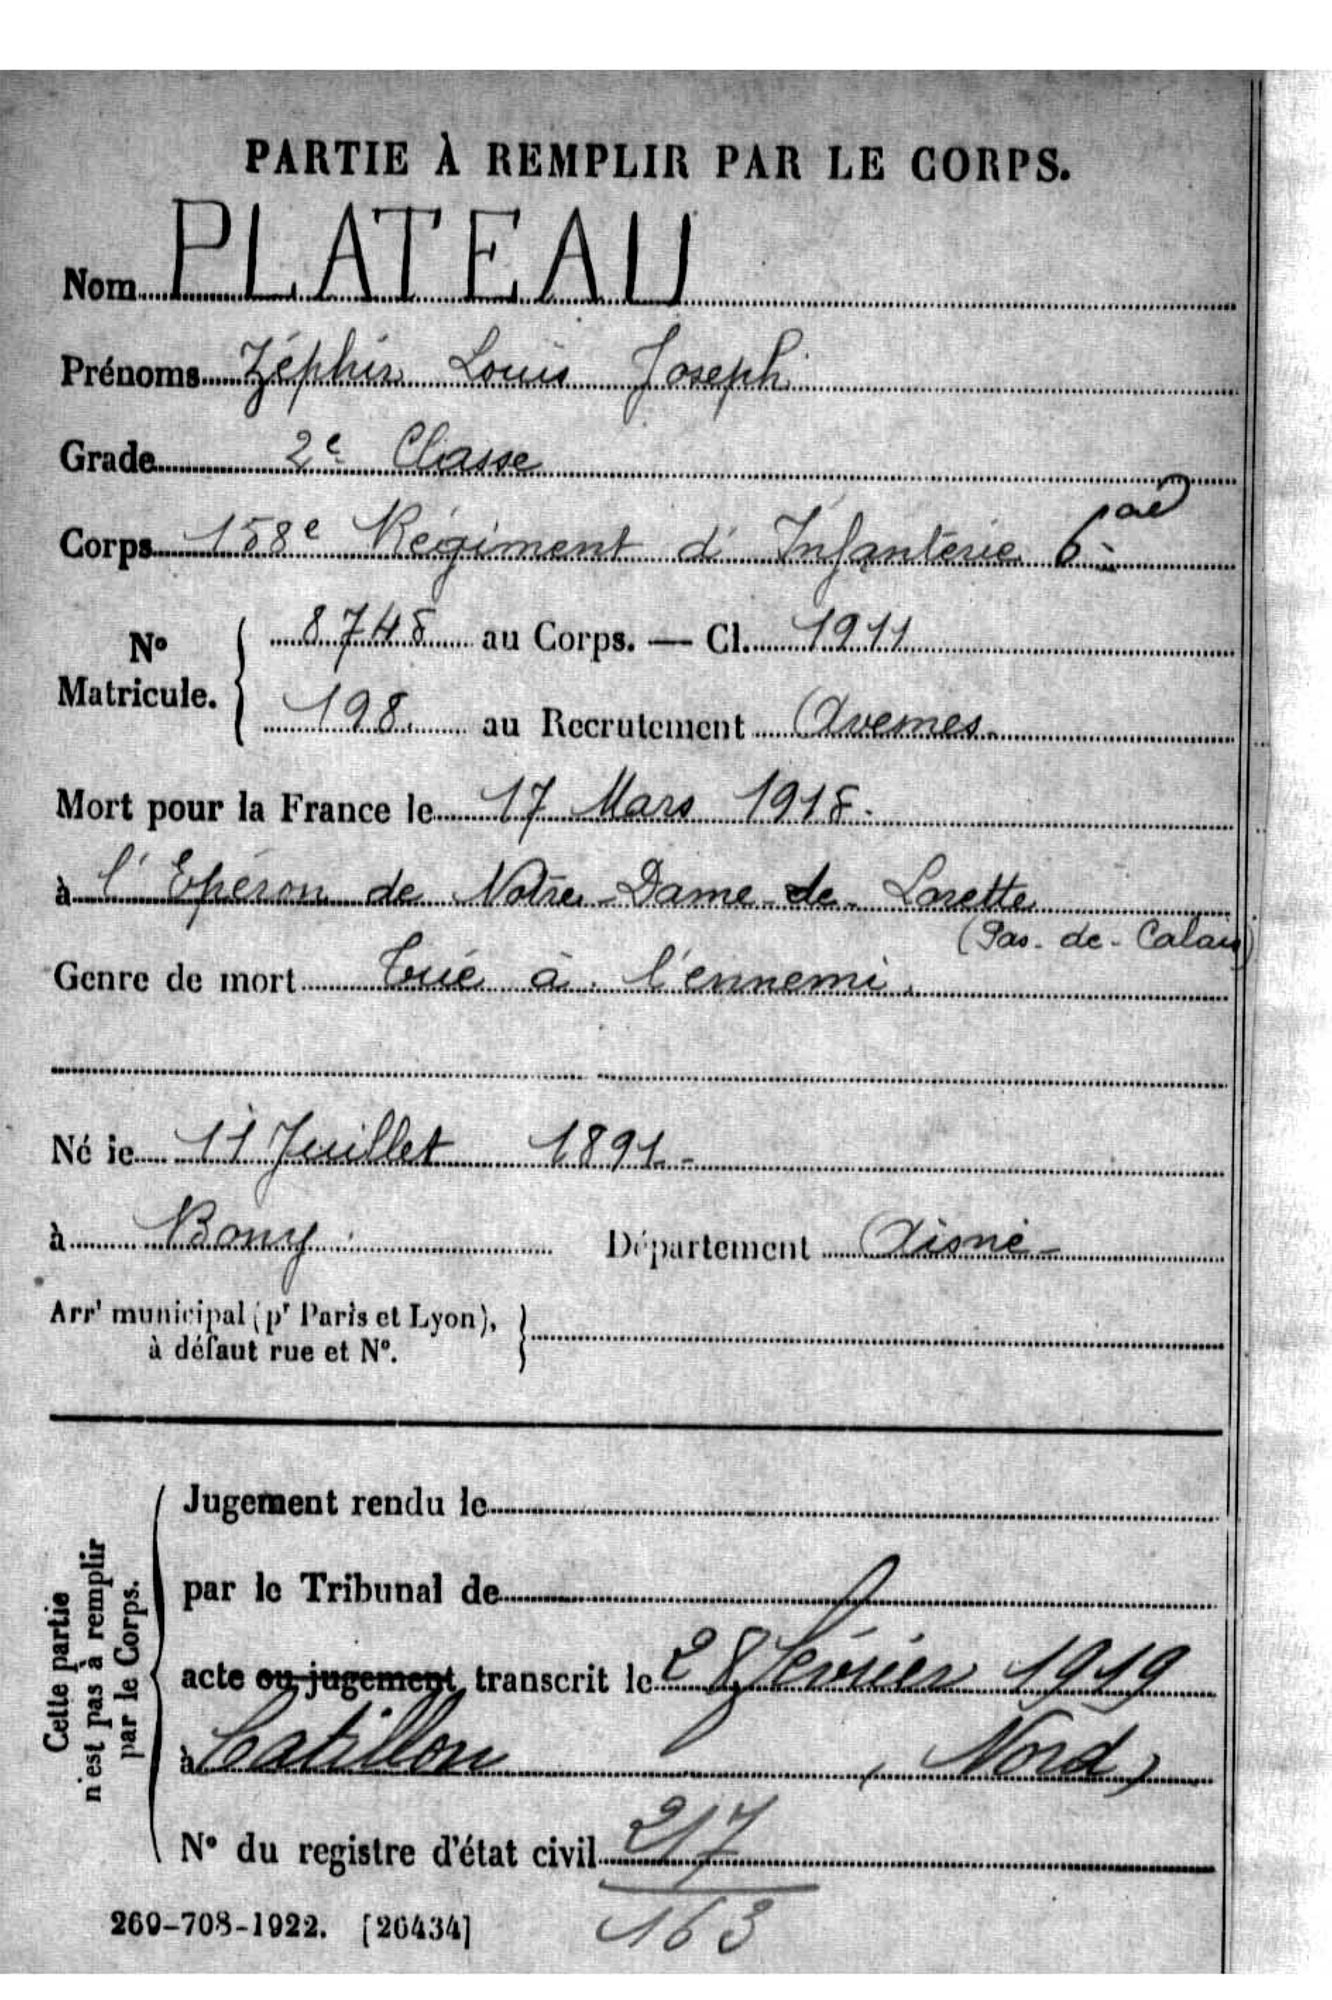 PARTIE À REMPLIR PAR LE CORPS.
Nom PLATEAU
Prénoms Zéphir Louis Joseph
Grade 2e Classe
Corps 158e Régiment d'Infanterie
No Matricule. 8748 au Corps. — Cl. 1911
198 au Recrutement Avesnes
Mort pour la France le 17 Mars 1915.
à l'Eperon de Notre-Dame-de-Lorette
(Pas-de-Calais)
Genre de mort Tué à l'ennemi.
Né le 11 Juillet 1891
à Bony Département Aisne
Arrt municipal (pr Paris et Lyon),
à défaut rue et No.
Cette partie
n'est pas à remplir
par le Corps.
Jugement rendu le
par le Tribunal de
acte ou jugement transcrit le 28 février 1919
à Catillon (Nord)
No du registre d'état civil 217
163
269-708-1922. [26434]